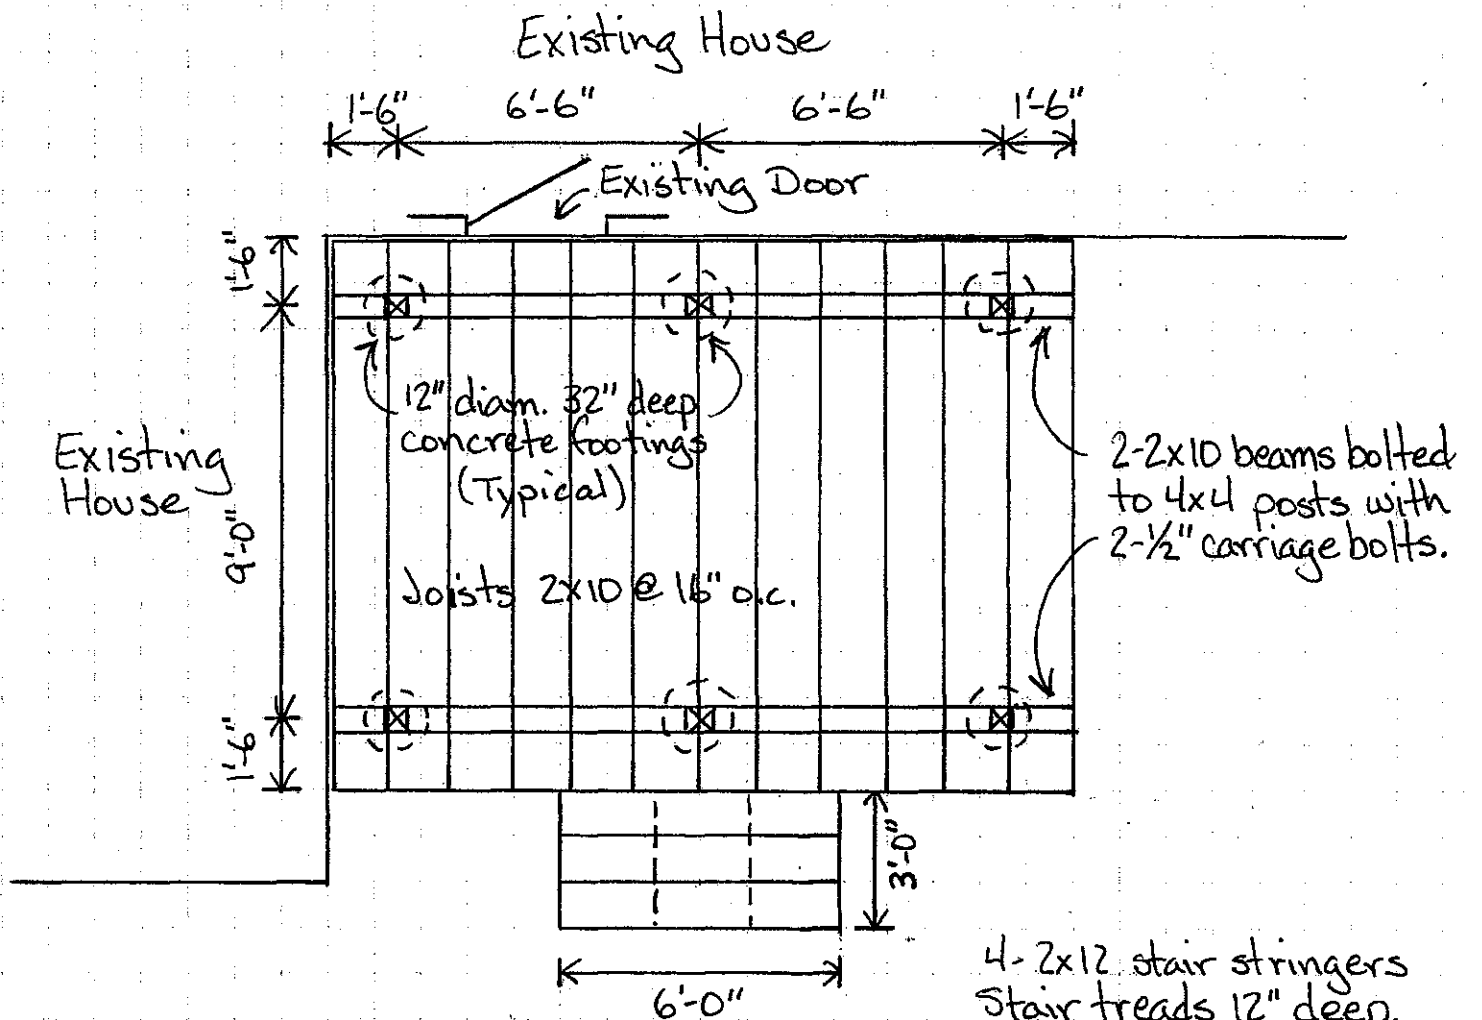 Existing House
1'-6" 6'-6" 6'-6" 1'-6"
Existing Door
1'-6"
12" diam. 32" deep
concrete footings
(Typical)
Existing
House
9'-0"
2-2x10 beams bolted
to 4x4 posts with
2-½" carriage bolts.
Joists 2x10 @ 16" o.c.
1'-6"
3'-0"
6'-0"
4-2x12 stair stringers
Stair treads 12" deep.